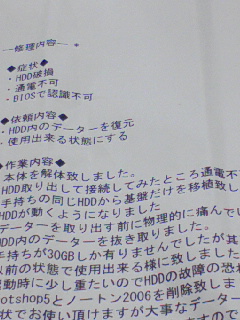 --修理内容-- *
◆症状◆
・HDD破損
・通電不可
・BIOSで認識不可
◆依頼内容◆
・HDD内のデーターを復元
・使用出来る状態にする
◆作業内容◆
本体を解体致しました。
HDD取り出して接続してみたところ通電不
手持ちの同じHDDから基盤だけを移植致し
HDDが動くようになりました
データーを取り出す前に物理的に痛んでい
HDD内のデーターを抜き取りました。
手持ちが30GBしか有りませんでしたが其
以前の状態で使用出来る様に致しました
起動時に少し重たいのでHDDの故障の恐れ
otshop5とノートン2006を削除致しま
状でお使い頂けますが大事なデータ